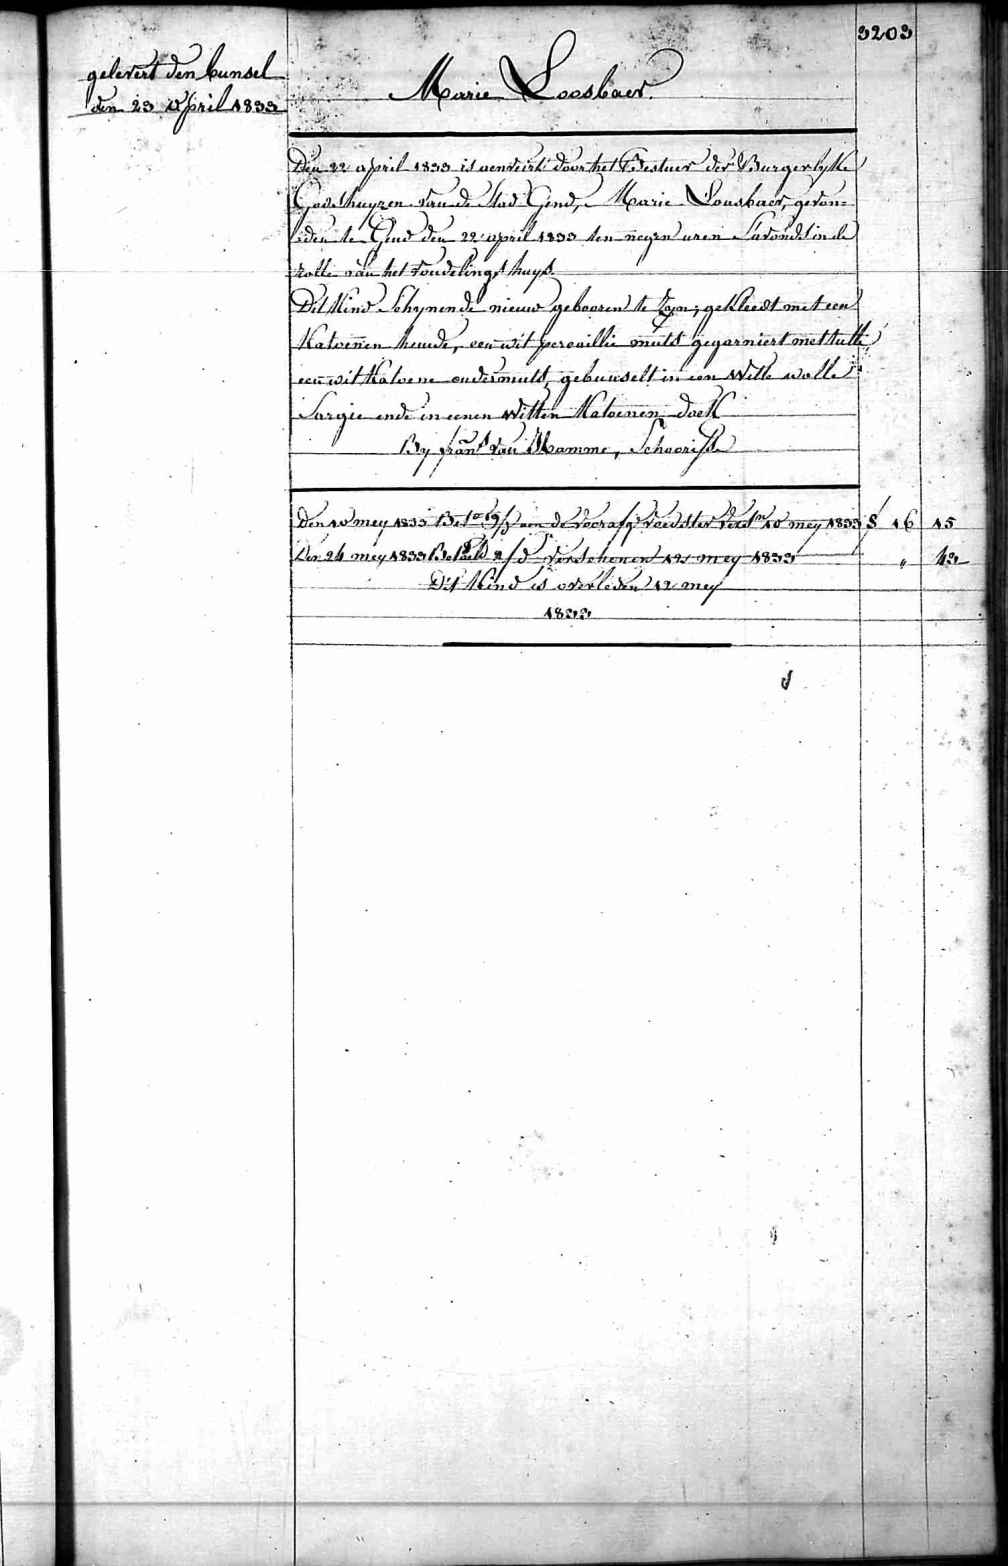 3203
gelevert den bunsel
den 23 April 1833
Marie Loosbaer.
Den 22 april 1833 is aenveirt door het Bestuer der Burgerlyke
Godshuyzen van de Stad Gend, Marie Loosbaer, gevon=
=den te Gend den 22 april 1833 ten negen uren Savonds in de
rolle van het vondelings huys.
Dit Kind Schynende nieuw gebooren te Zyn; gekleedt met een
Katoenen hemde, een wit percaillie muts gegarniert met tulle
een wit Katoene ondermuts, gebunselt in een Witte wolle
Sargie ende in eenen Witten Katoenen doek
By frans van Damme, Schoorisse
Den 10 mey 1833 Bet. aen de voorafg voedster 10 mey 1833 f 16 15
Den 24 mey 1833 Betaeld verschenen 12 mey 1833 " 43
Dit Kind is overleden 12 mey
1833